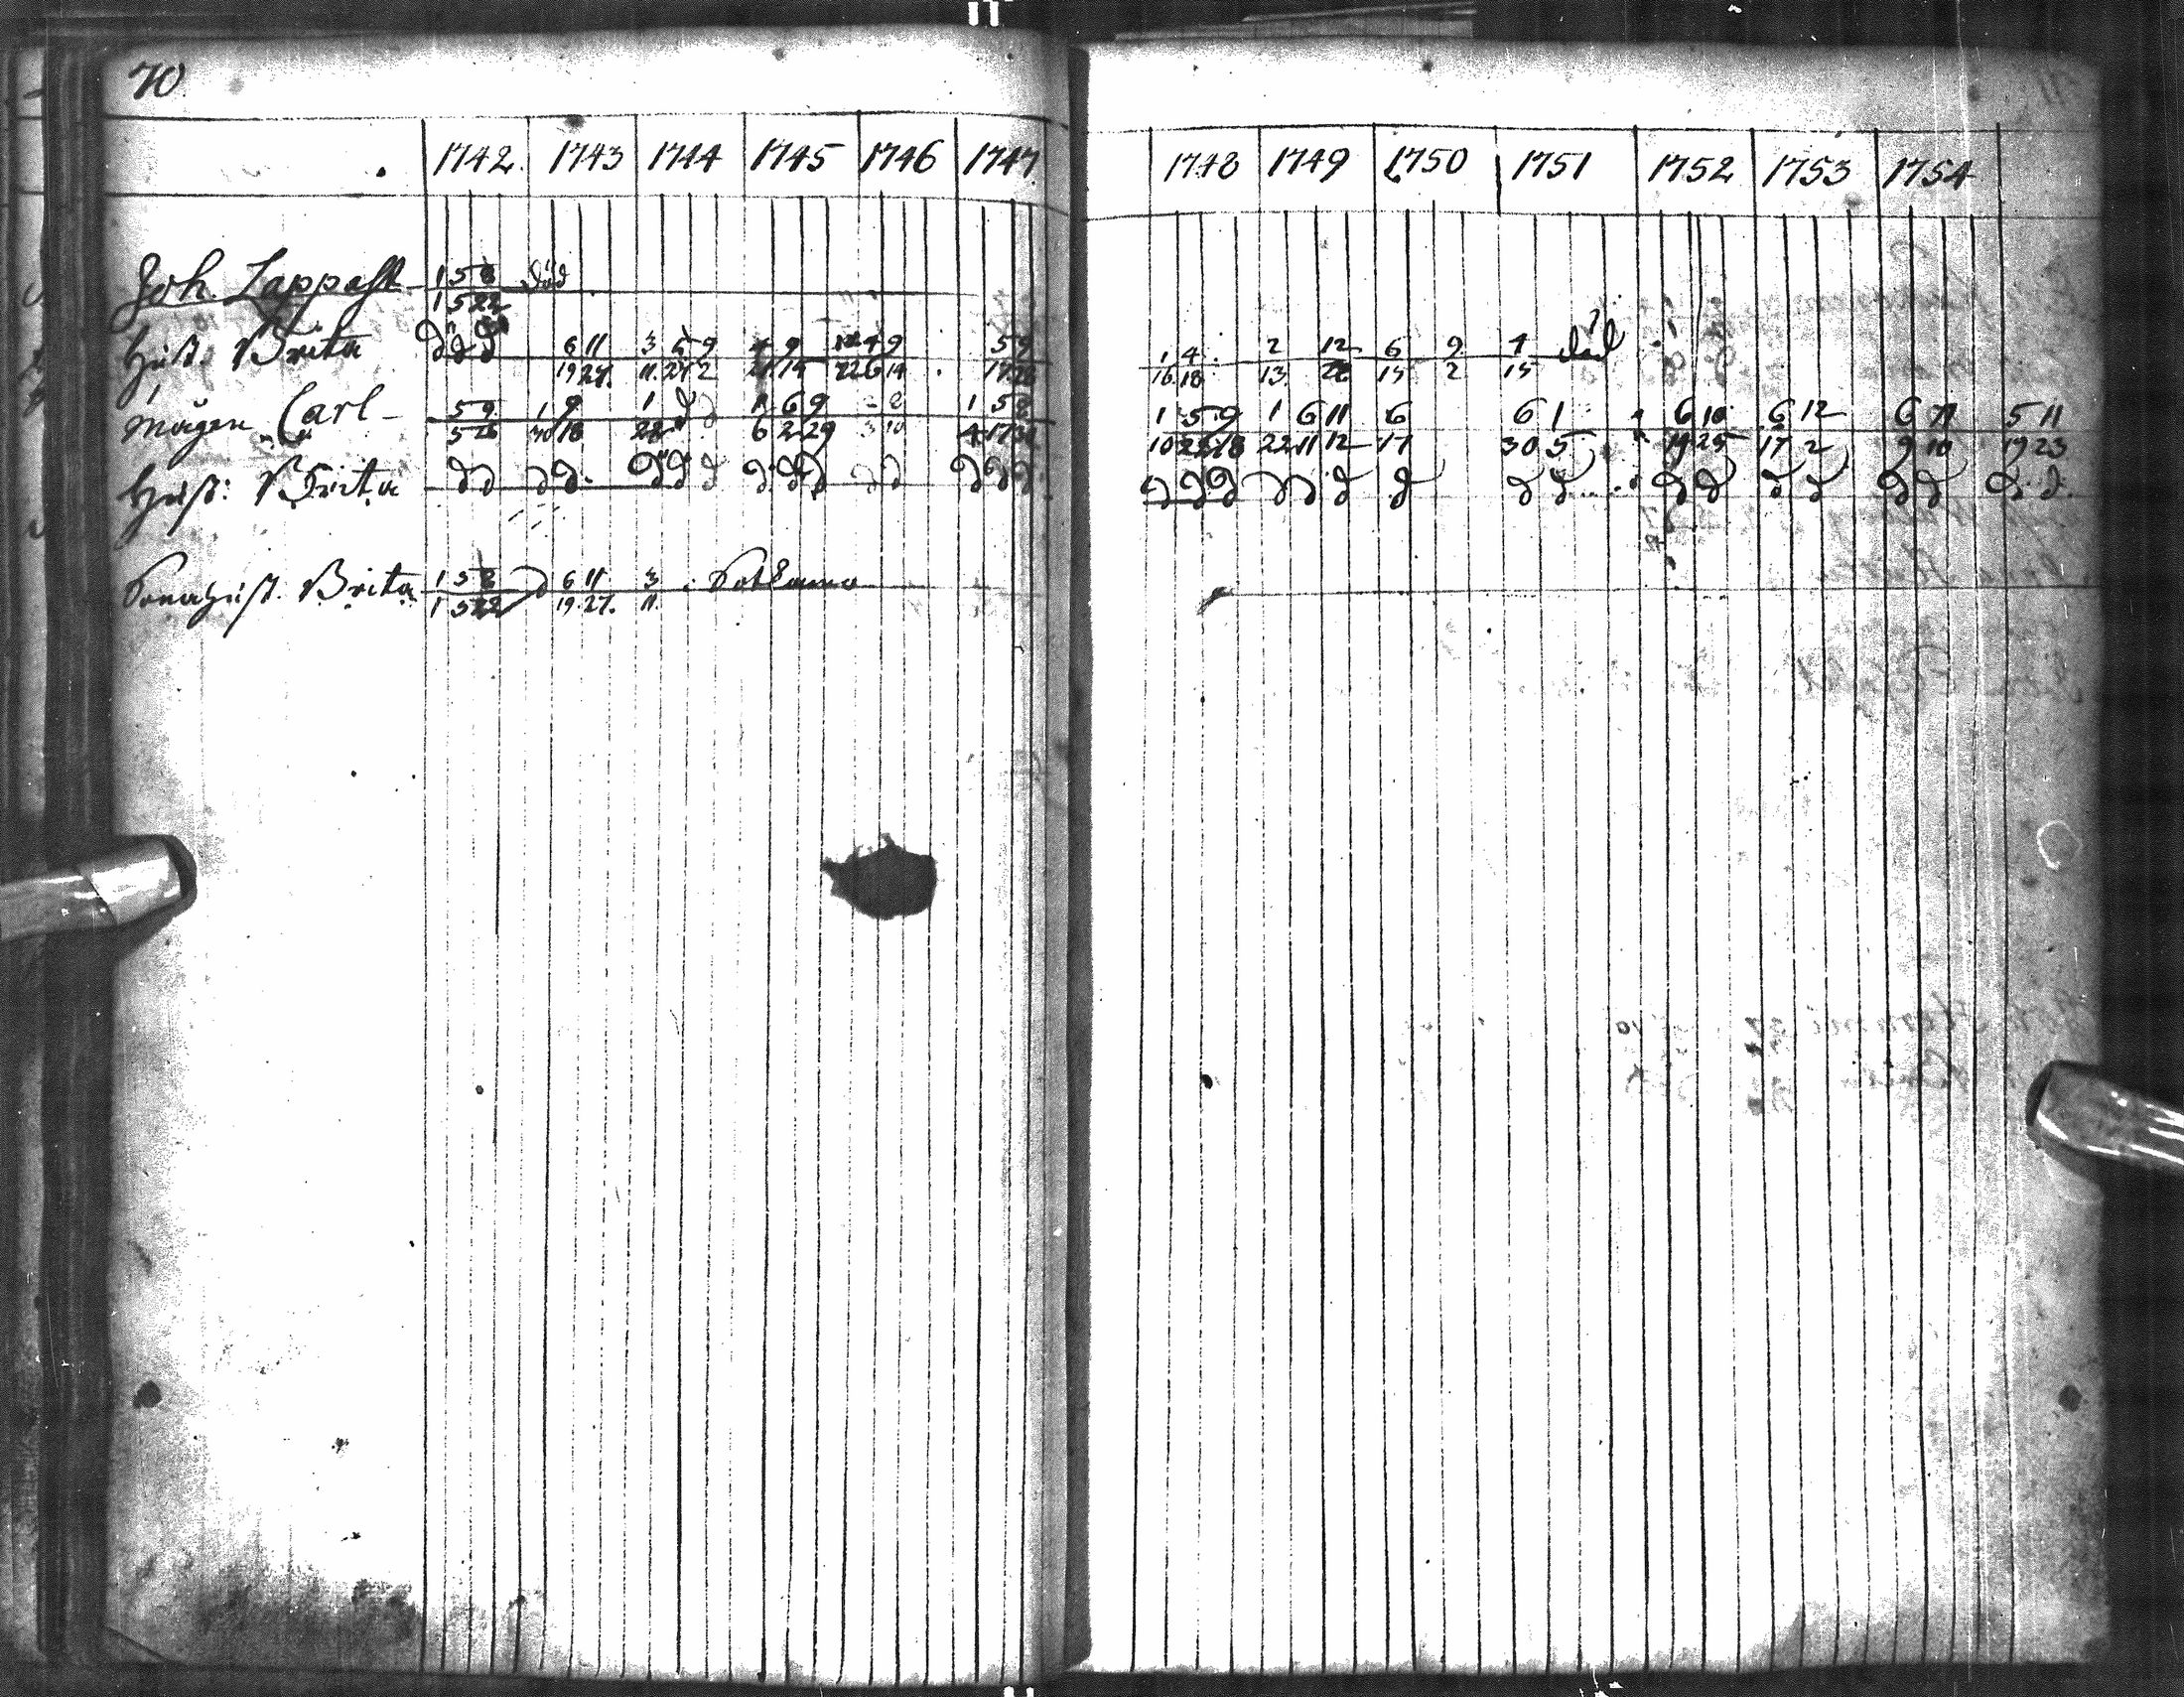 70
1742 1743 1744 1745 1746 1747 1748 1749 1750 1751 1752 1753 1754
Joh. Lappalt 1 5 8 död
1 5 22
Hust. Brita d d d 6 11 3 5 9 4 9 4 9 5 1 4 2 12 6 9 4 död
19 27 11 27 2 14 22 6 14 17 16 18 13 15 2 15
mågen Carl 5 9 1 9 1 d d 6 9 1 5 1 5 9 1 6 11 6 6 1 6 10 6 12 6 11 5 11
5 26 30 18 28 6 2 29 4 17 10 22 18 22 11 12 17 30 5 19 25 17 2 9 10 19 23
Hust: Brita d d d d d d d d d d d d d d d d d d d d d d d d d d d d d d d d d
Sonahust. Brita 1 5 8 d 6 11 3 Sotkamo
1 5 22 19 27. 11.